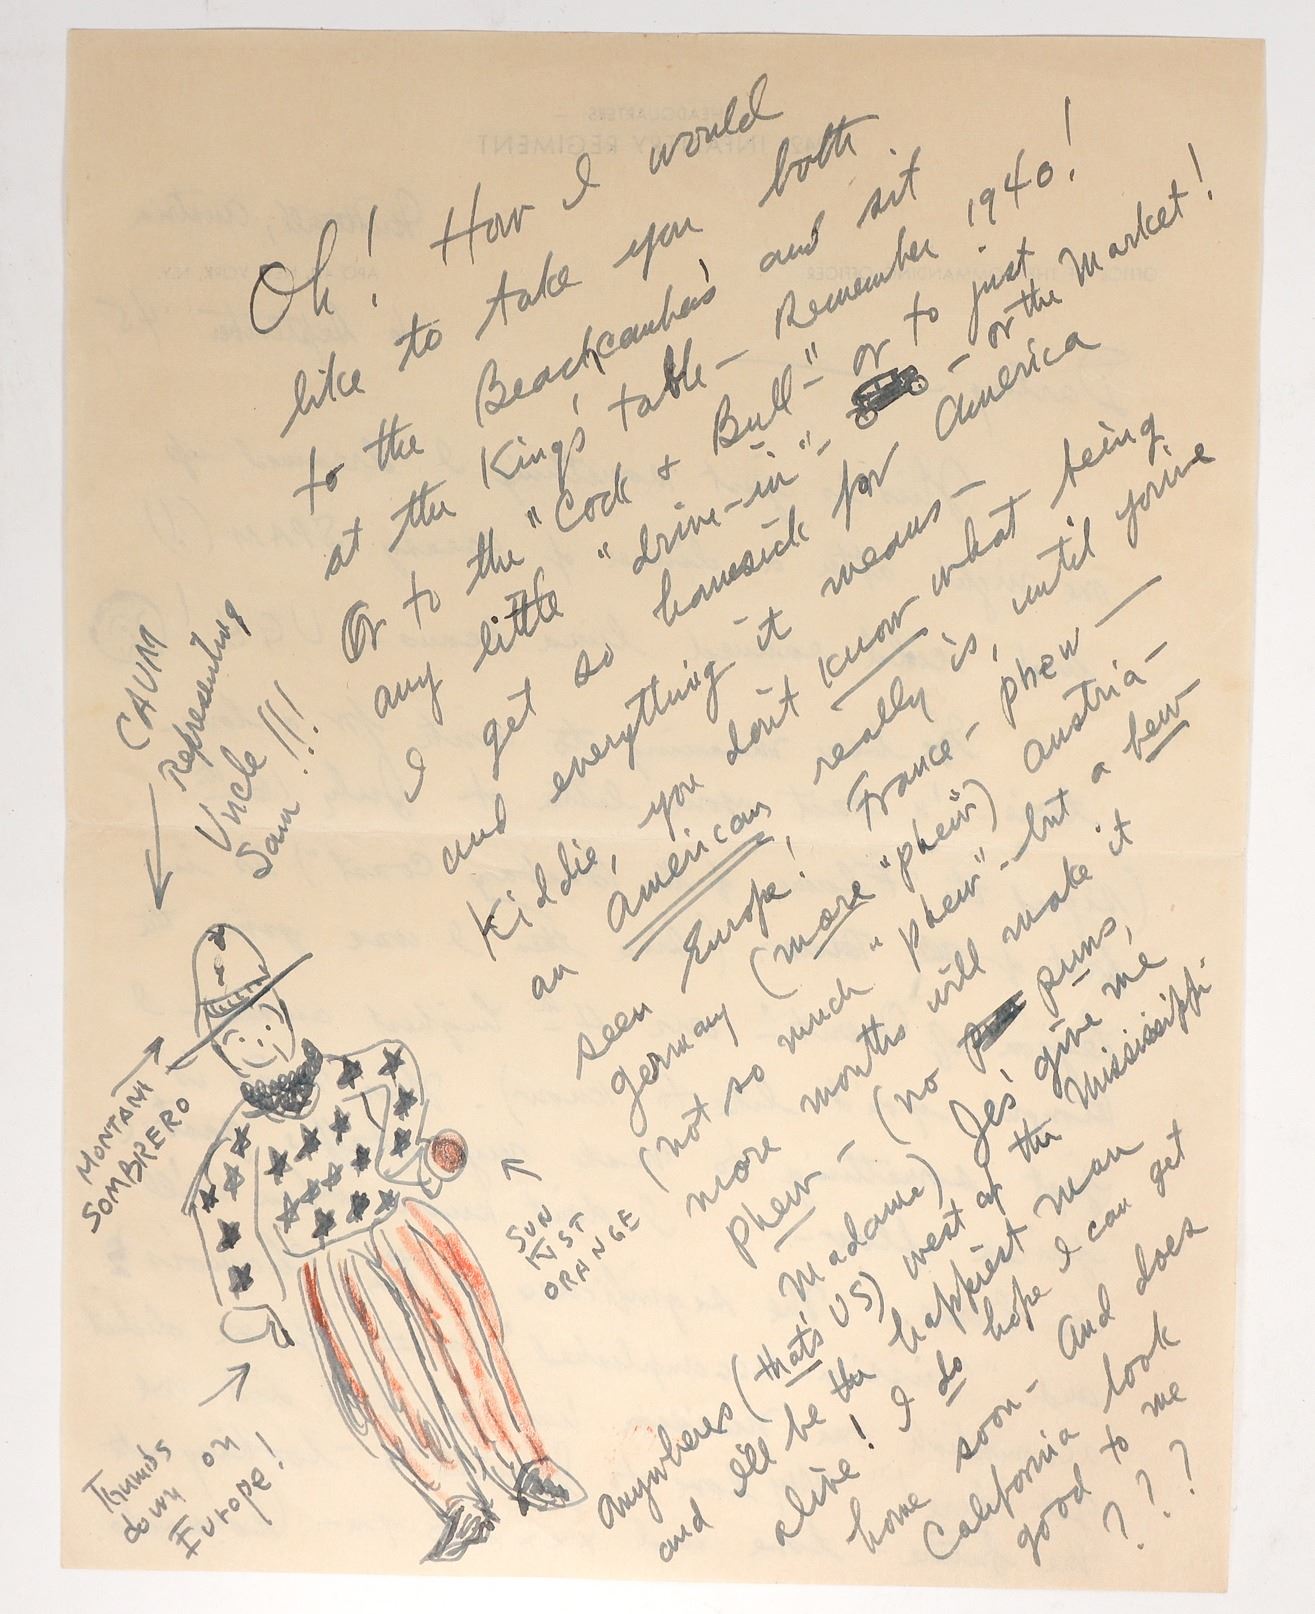 Oh! How I would
like to take you both
to the Beachcomber's and sit
at the King's table - Remember 1940!
Or to the "Cock & Bull" - or to just
any little "drive-in" - - or the Market!
I get so homesick for America
and everything it means -
Kiddie, you don't know what being
an American really is, until you've
seen Europe! France - phew -
Germany (more "phew") Austria -
(not so much "phew" - but a few
more months will make it
phew - (no puns,
Madame) Jes' give me
anywheres (that's US) west of the Mississippi
and I'll be the happiest man
alive! I do hope I can get
home soon - And does
California look
good to me
? ? ?
CAVM
Representing
Uncle
Sam!!!
MONTANA
SOMBRERO
SUN
KIST
ORANGE
Thumbs
down on
Europe!
HEADQUARTERS
INFANTRY REGIMENT